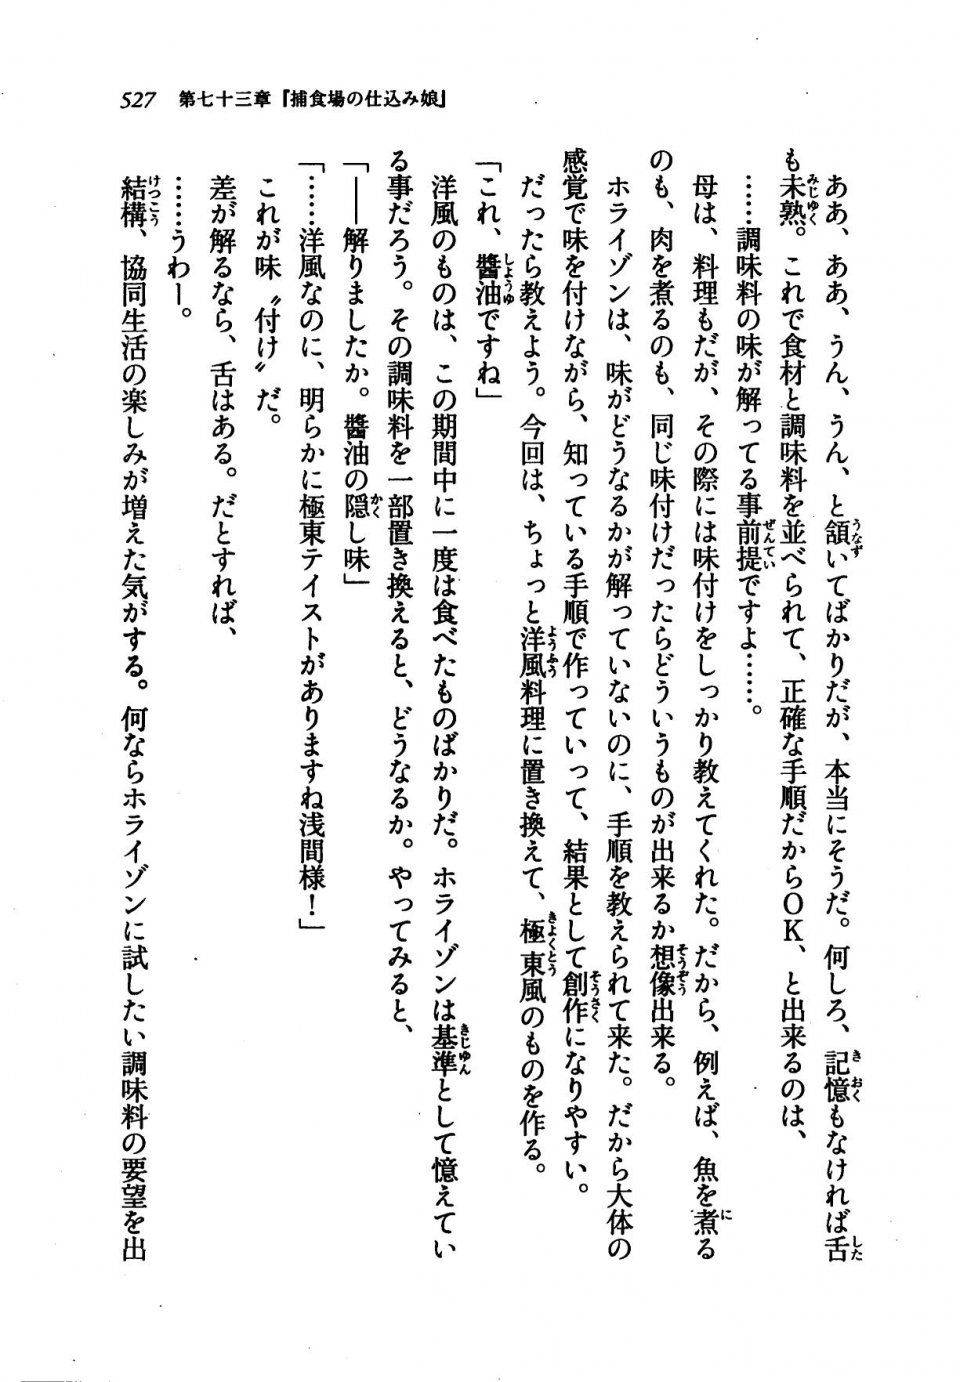 527 第七十三章『捕食場の仕込み娘』
ああ、ああ、うん、うん、と頷いてばかりだが、本当にそうだ。何しろ、記憶もなければ舌
も未熟。これで食材と調味料を並べられて、正確な手順だからＯＫ、と出来るのは、
……調味料の味が解ってる事前提ですよ……。
母は、料理もだが、その際には味付けをしっかり教えてくれた。だから、例えば、魚を煮る
のも、肉を煮るのも、同じ味付けだったらどういうものが出来るか想像出来る。
ホライゾンは、味がどうなるかが解っていないのに、手順を教えられて来た。だから大体の
感覚で味を付けながら、知っている手順で作っていって、結果として創作になりやすい。
だったら教えよう。今回は、ちょっと洋風料理に置き換えて、極東風のものを作る。
「これ、醤油ですね」
洋風のものは、この期間中に一度は食べたものばかりだ。ホライゾンは基準として憶えてい
る事だろう。その調味料を一部置き換えると、どうなるか。やってみると、
「――解りましたか。醤油の隠し味」
「……洋風なのに、明らかに極東テイストがありますね浅間様！」
これが味〝付け〟だ。
差が解るなら、舌はある。だとすれば、
……うわー。
結構、協同生活の楽しみが増えた気がする。何ならホライゾンに試したい調味料の要望を出